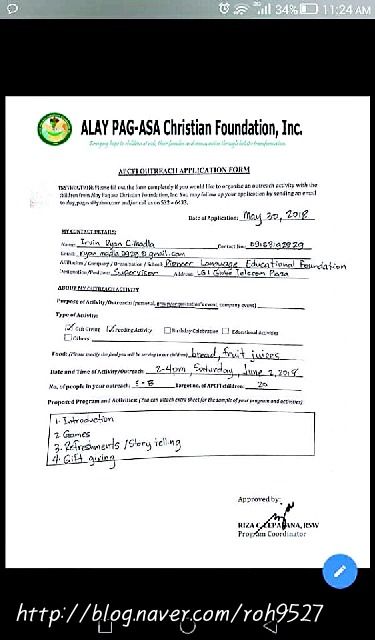 34% 11:24 AM
ALAY PAG-ASA Christian Foundation, Inc.
Bringing hope to children at risk, their families and communities through holistic transformation.
APCFI OUTREACH APPLICATION FORM
INSTRUCTION: Please fill out the form completely if you would like to organize an outreach activity with the
children from Alay Pag-asa Christian Foundation, Inc. You may follow up your application by sending an email
Date of Application: May 30, 2018
MY CONTACT DETAILS:
Name: Irvin Ryan C. Madla Contact No.:
Affiliation / Company / Organization / School: Pioneer Language Educational Foundation
Designation/Position: Supervisor Address: LG1 Globe Telecom Plaza
ABOUT MY OUTREACH ACTIVITY
Purpose of Activity/Outreach: (personal, group/organization's event, company event)
Type of Activity:
Gift Giving Feeding Activity Birthday Celebration Educational Activities
Others
Food: (Please specify the food you will be serving to our children) bread, fruit juices
Date and Time of Activity/Outreach: 2-4pm, Saturday, June 2, 2018
No. of people in your outreach: 5-8 Target no. of APCFI children: 20
Proposed Program and Activities: (You can attach extra sheet for the sample of your program and activities)
1. Introduction
2. Games
3. Refreshments / Story telling
4. Gift giving
Approved by:
RIZA C. CEPADANA, RSW
Program Coordinator
http://blog.naver.com/roh9527